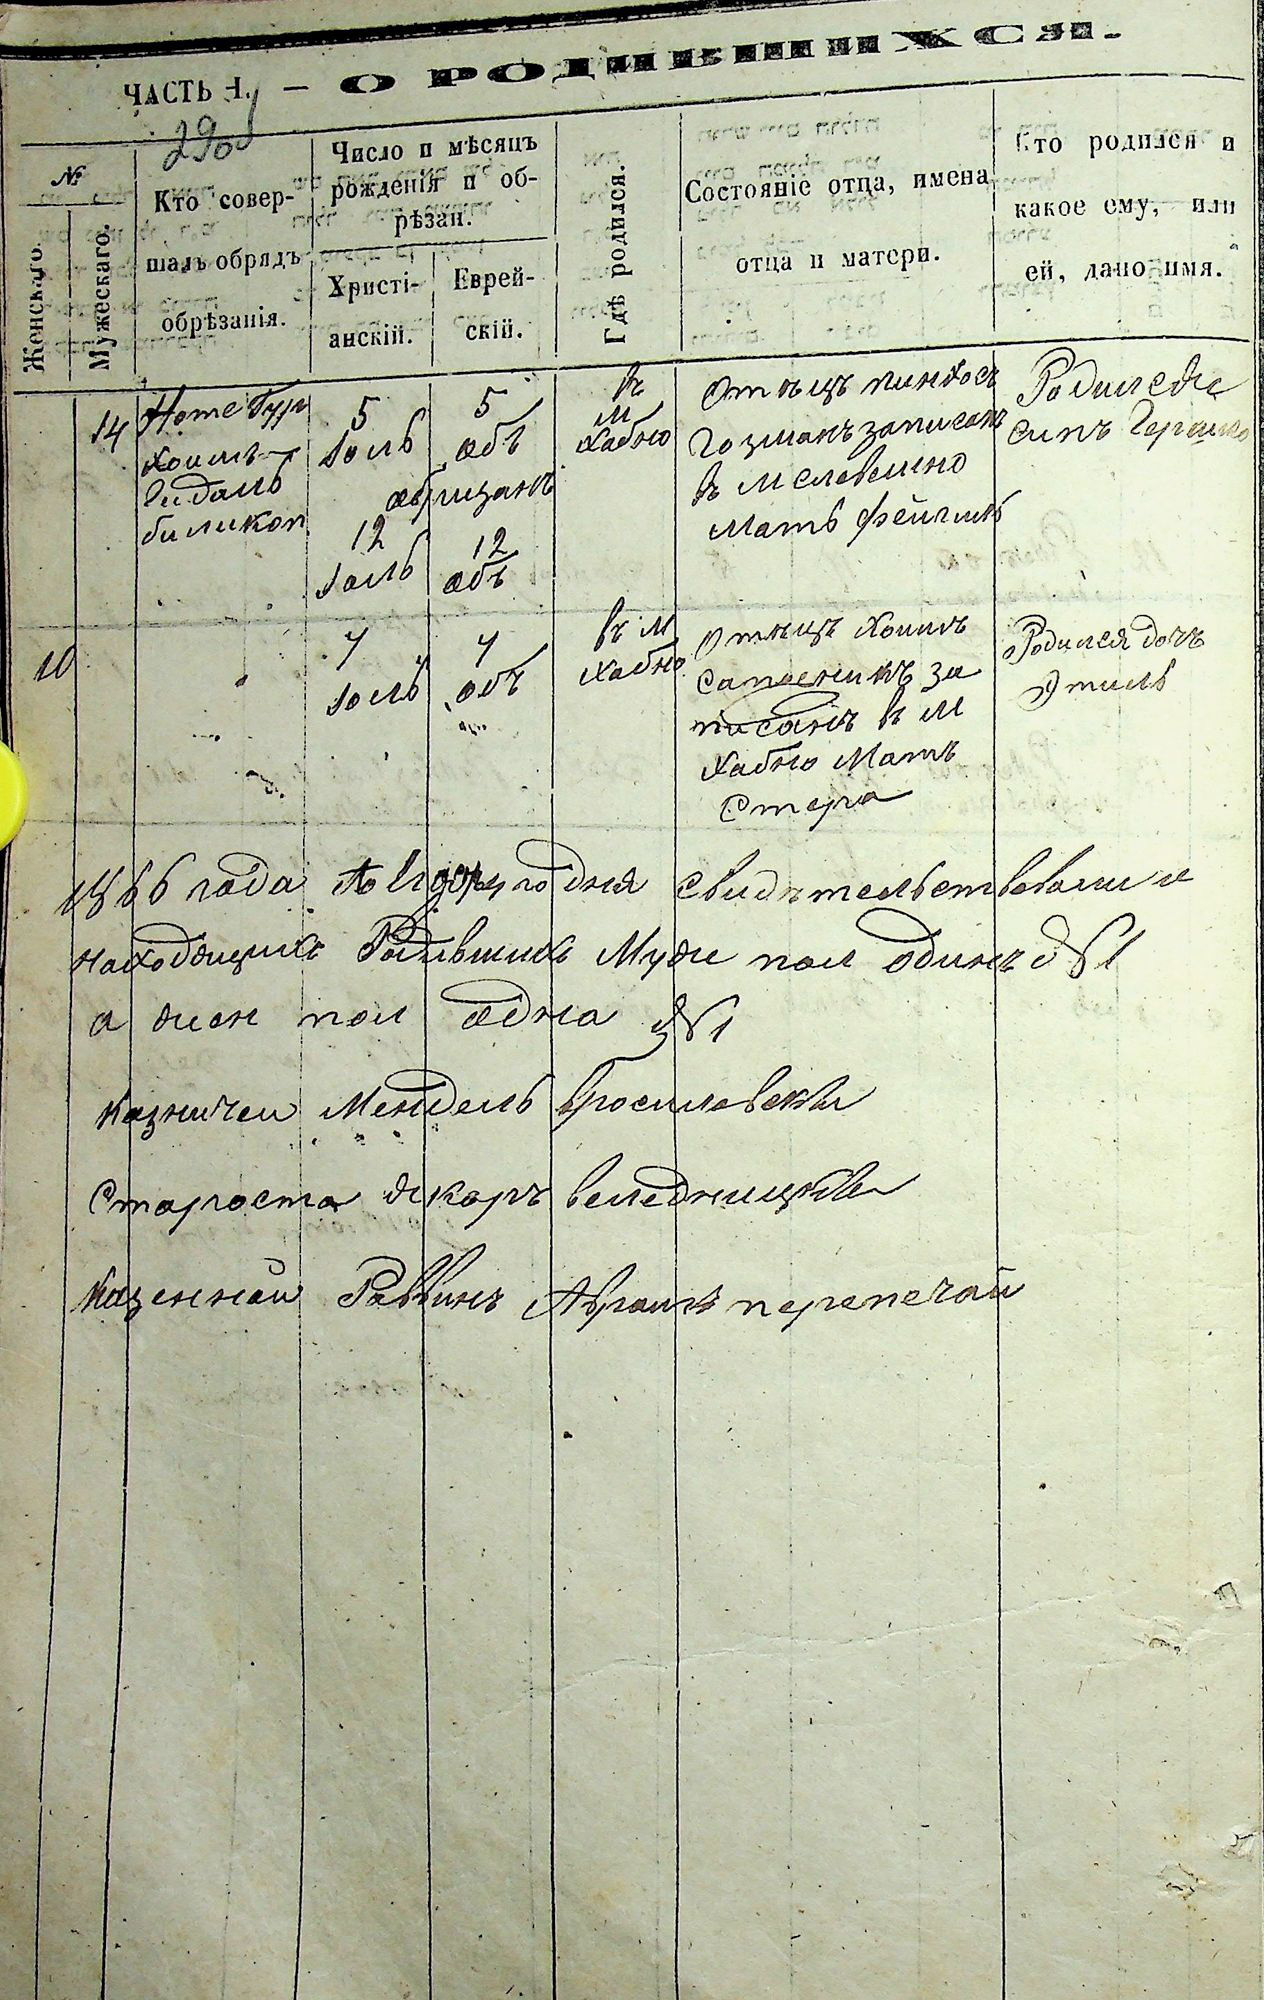 ЧАСТЬ I. — О РОДИВШИХСЯ.
290
№
Женскаго.
Мужескаго.
Кто совер-
шалъ обрядъ
обрѣзанія.
Число и мѣсяцъ
рожденія и об-
рѣзан.
Христі-
анскій.
Еврей-
скій.
Гдѣ родился.
Состояніе отца, имена
отца и матери.
Кто родился и
какое ему, или
ей, дано имя.
14
Ноте Гур
Хоимъ
биликоп
5
Юль
5
абъ
12
Юль
12
абъ
въ
м
Хабно
Отецъ пинхосъ
Гозманъ записанъ
въ м
Мать Фейгель
Родился
синъ Гершко
10
4
Юль
4
абъ
въ м
Хабно
Отецъ Хоимъ
Сапожникъ за
писанъ въ м
Хабно Мать
Стера
Родился дочъ
Этиль
1866 года го дня Свидѣтельствовали и
Родившихъ Муже пол одинъ №1
а жен пол одна №1
Казначеи Мендель
Староста
Казенной Раввинъ Авраамъ перепечай